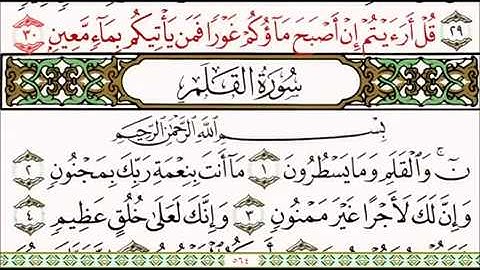 ٢٩ قُلْ أَرَءَيْتُمْ إِنْ أَصْبَحَ مَآؤُكُمْ غَوْرًا فَمَن يَأْتِيكُم بِمَآءٍ مَّعِينٍۭ ٣٠
سُورَةُ الْقَلَمِ
بِسْمِ اللَّهِ الرَّحْمَٰنِ الرَّحِيمِ
نٓ ۚ وَالْقَلَمِ وَمَا يَسْطُرُونَ ١ مَآ أَنتَ بِنِعْمَةِ رَبِّكَ بِمَجْنُونٍ ٢
وَإِنَّ لَكَ لَأَجْرًا غَيْرَ مَمْنُونٍ ٣ وَإِنَّكَ لَعَلَىٰ خُلُقٍ عَظِيمٍ ٤
٥٦٤